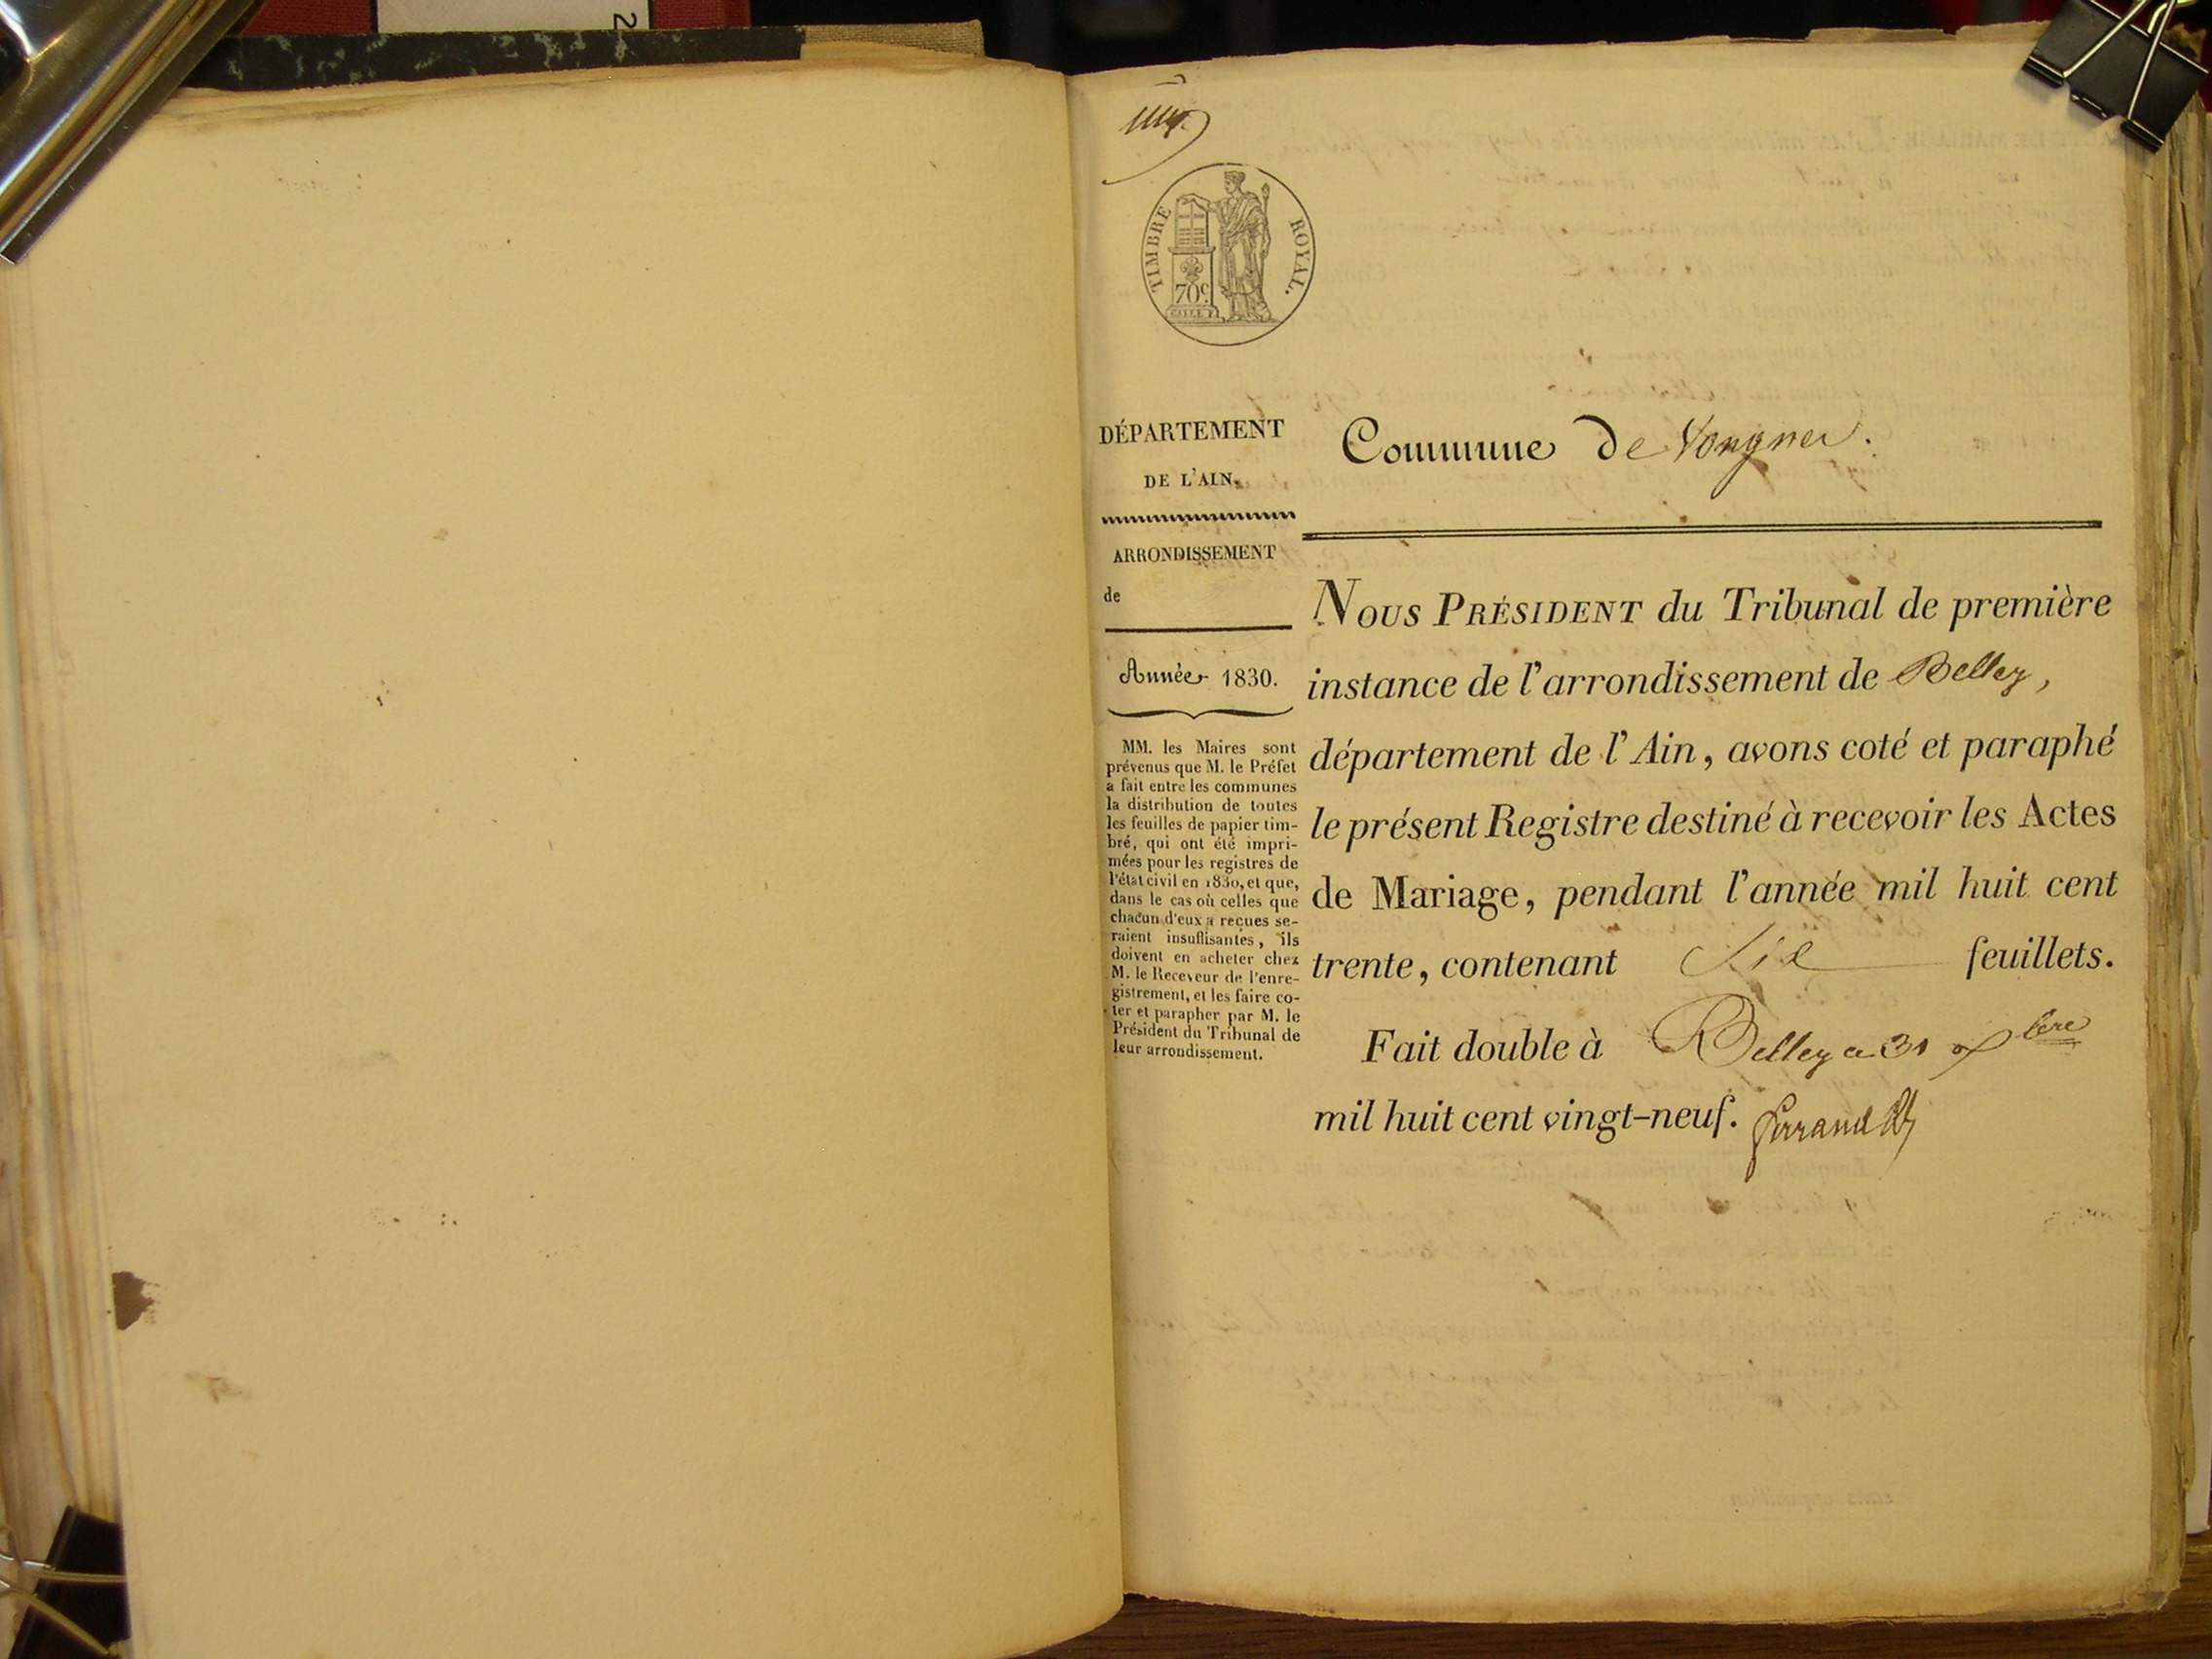 2
TIMBRE ROYAL.
70c.
DÉPARTEMENT
DE L'AIN.
ARRONDISSEMENT
de
Année 1830.
MM. les Maires sont
prévenus que M. le Préfet
a fait entre les communes
la distribution de toutes
les feuilles de papier tim-
bré, qui ont été impri-
mées pour les registres de
l'état civil en 1830, et que,
dans le cas où celles que
chacun d'eux a reçues se-
raient insuffisantes, ils
doivent en acheter chez
M. le Receveur de l'enre-
gistrement, et les faire co-
ter et parapher par M. le
Président du Tribunal de
leur arrondissement.
Commune de Vongnes.
NOUS PRÉSIDENT du Tribunal de première
instance de l'arrondissement de Belley,
département de l'Ain, avons coté et paraphé
le présent Registre destiné à recevoir les Actes
de Mariage, pendant l'année mil huit cent
trente, contenant Six feuillets.
Fait double à Belley ce 31 xbre
mil huit cent vingt-neuf. Ferrand